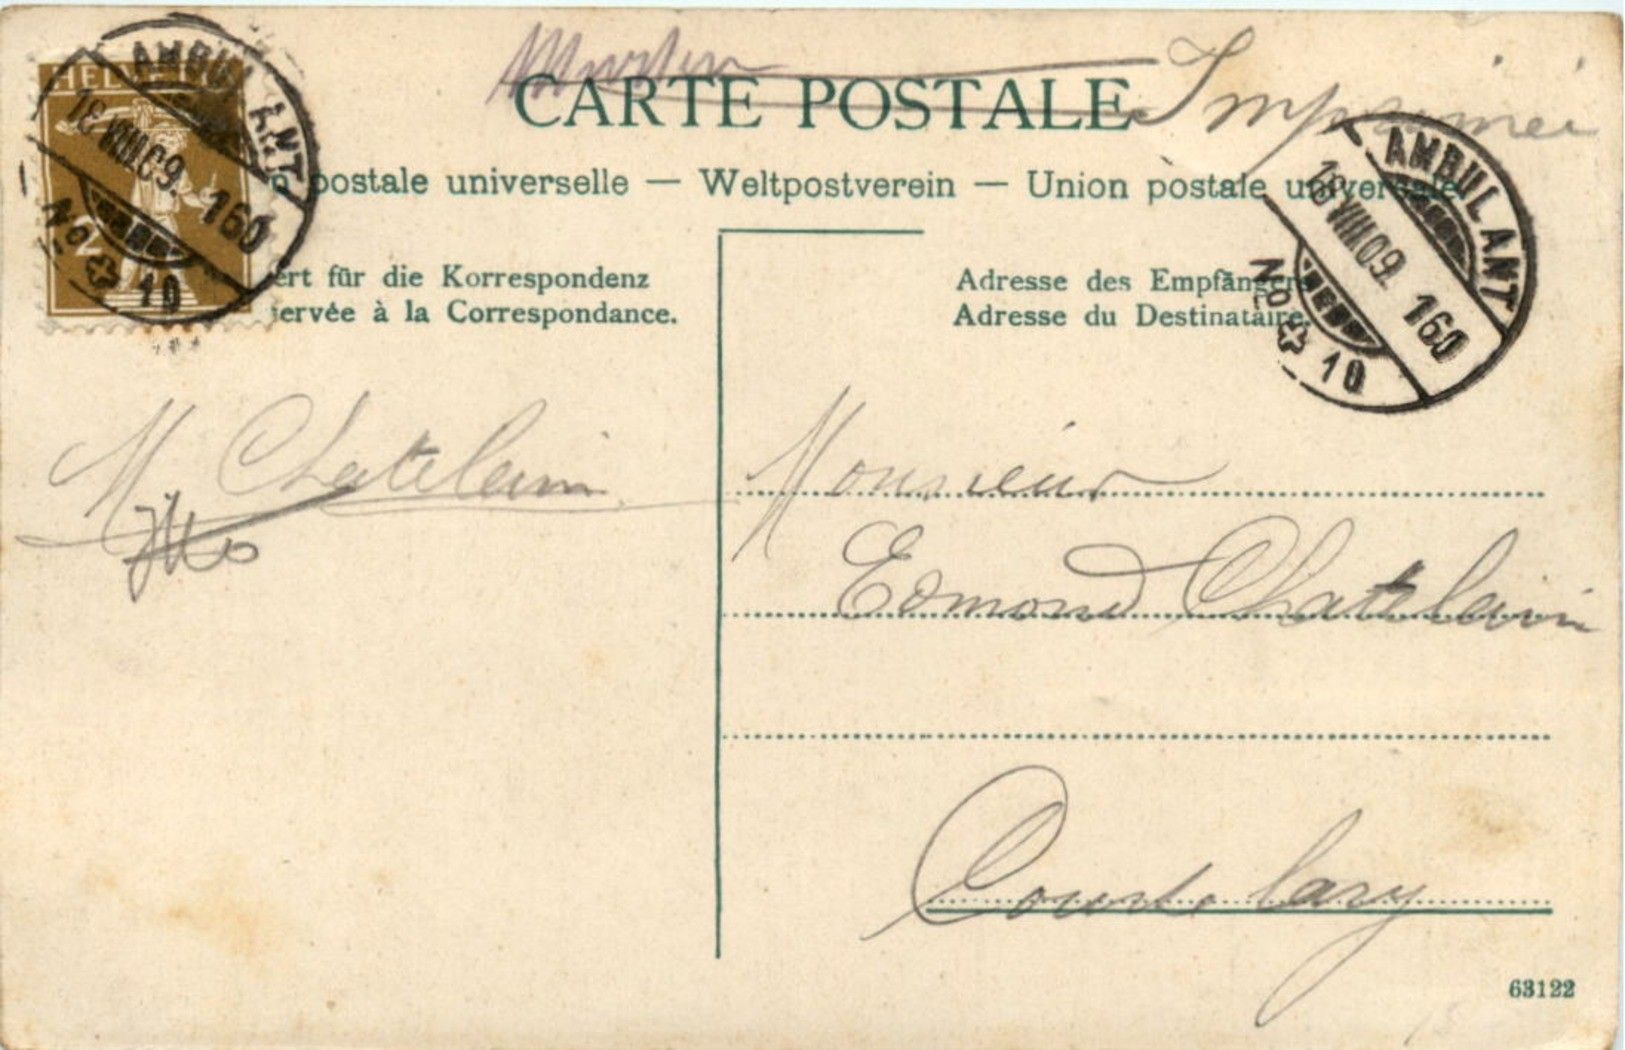 CARTE POSTALE
Imprimé
postale universelle — Weltpostverein — Union postale universelle
HELVETIA
2
AMBULANT
18 VIII 09. 160
No 10
AMBULANT
18 VIII 09. 160
No 10
ert für die Korrespondenz
servée à la Correspondance.
Adresse des Empfängers
Adresse du Destinataire.
M Chatelain
Monsieur
Edmond Chatelain
Courtelary
63122